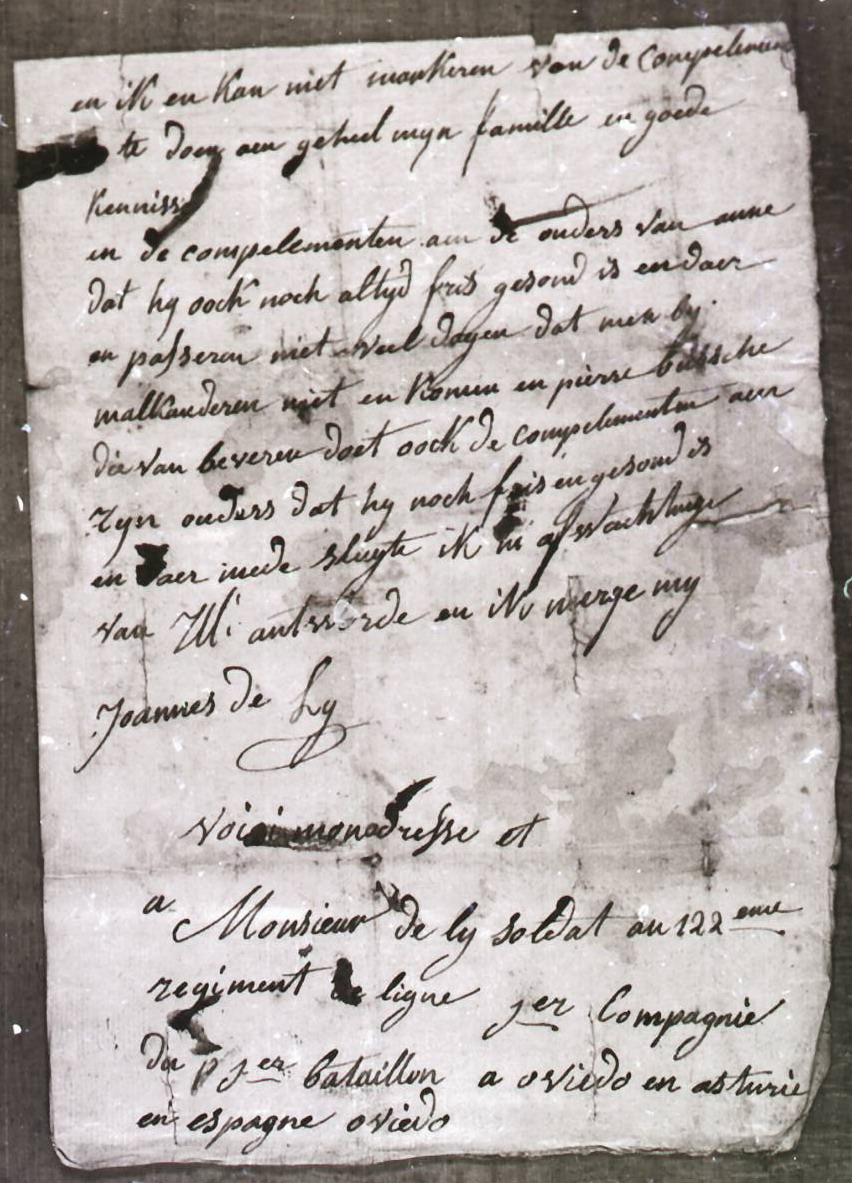 en ik en kan niet mankeren van de compelemen
te doen aen geheel myn famille en goede
kenniss
en de compelementen aen de ouders van anne
dat hy oock noch altyd fris gesond is en daer
en passeren niet veel dagen dat men by
malkanderen niet en komen en pierre bussche
die van beveren doet oock de compelementen aen
zyn ouders dat hy noch fris en gesond is
en daer mede sluyte ik in afwachtinge
van Uli antworde en ik my
Joannes de Ly
voici mon adresse et
a Monsieur de ly soldat au 122 eme
regiment de ligne 1er Compagnie
du 1er bataillon a oviedo en asturie
en espagne oviedo